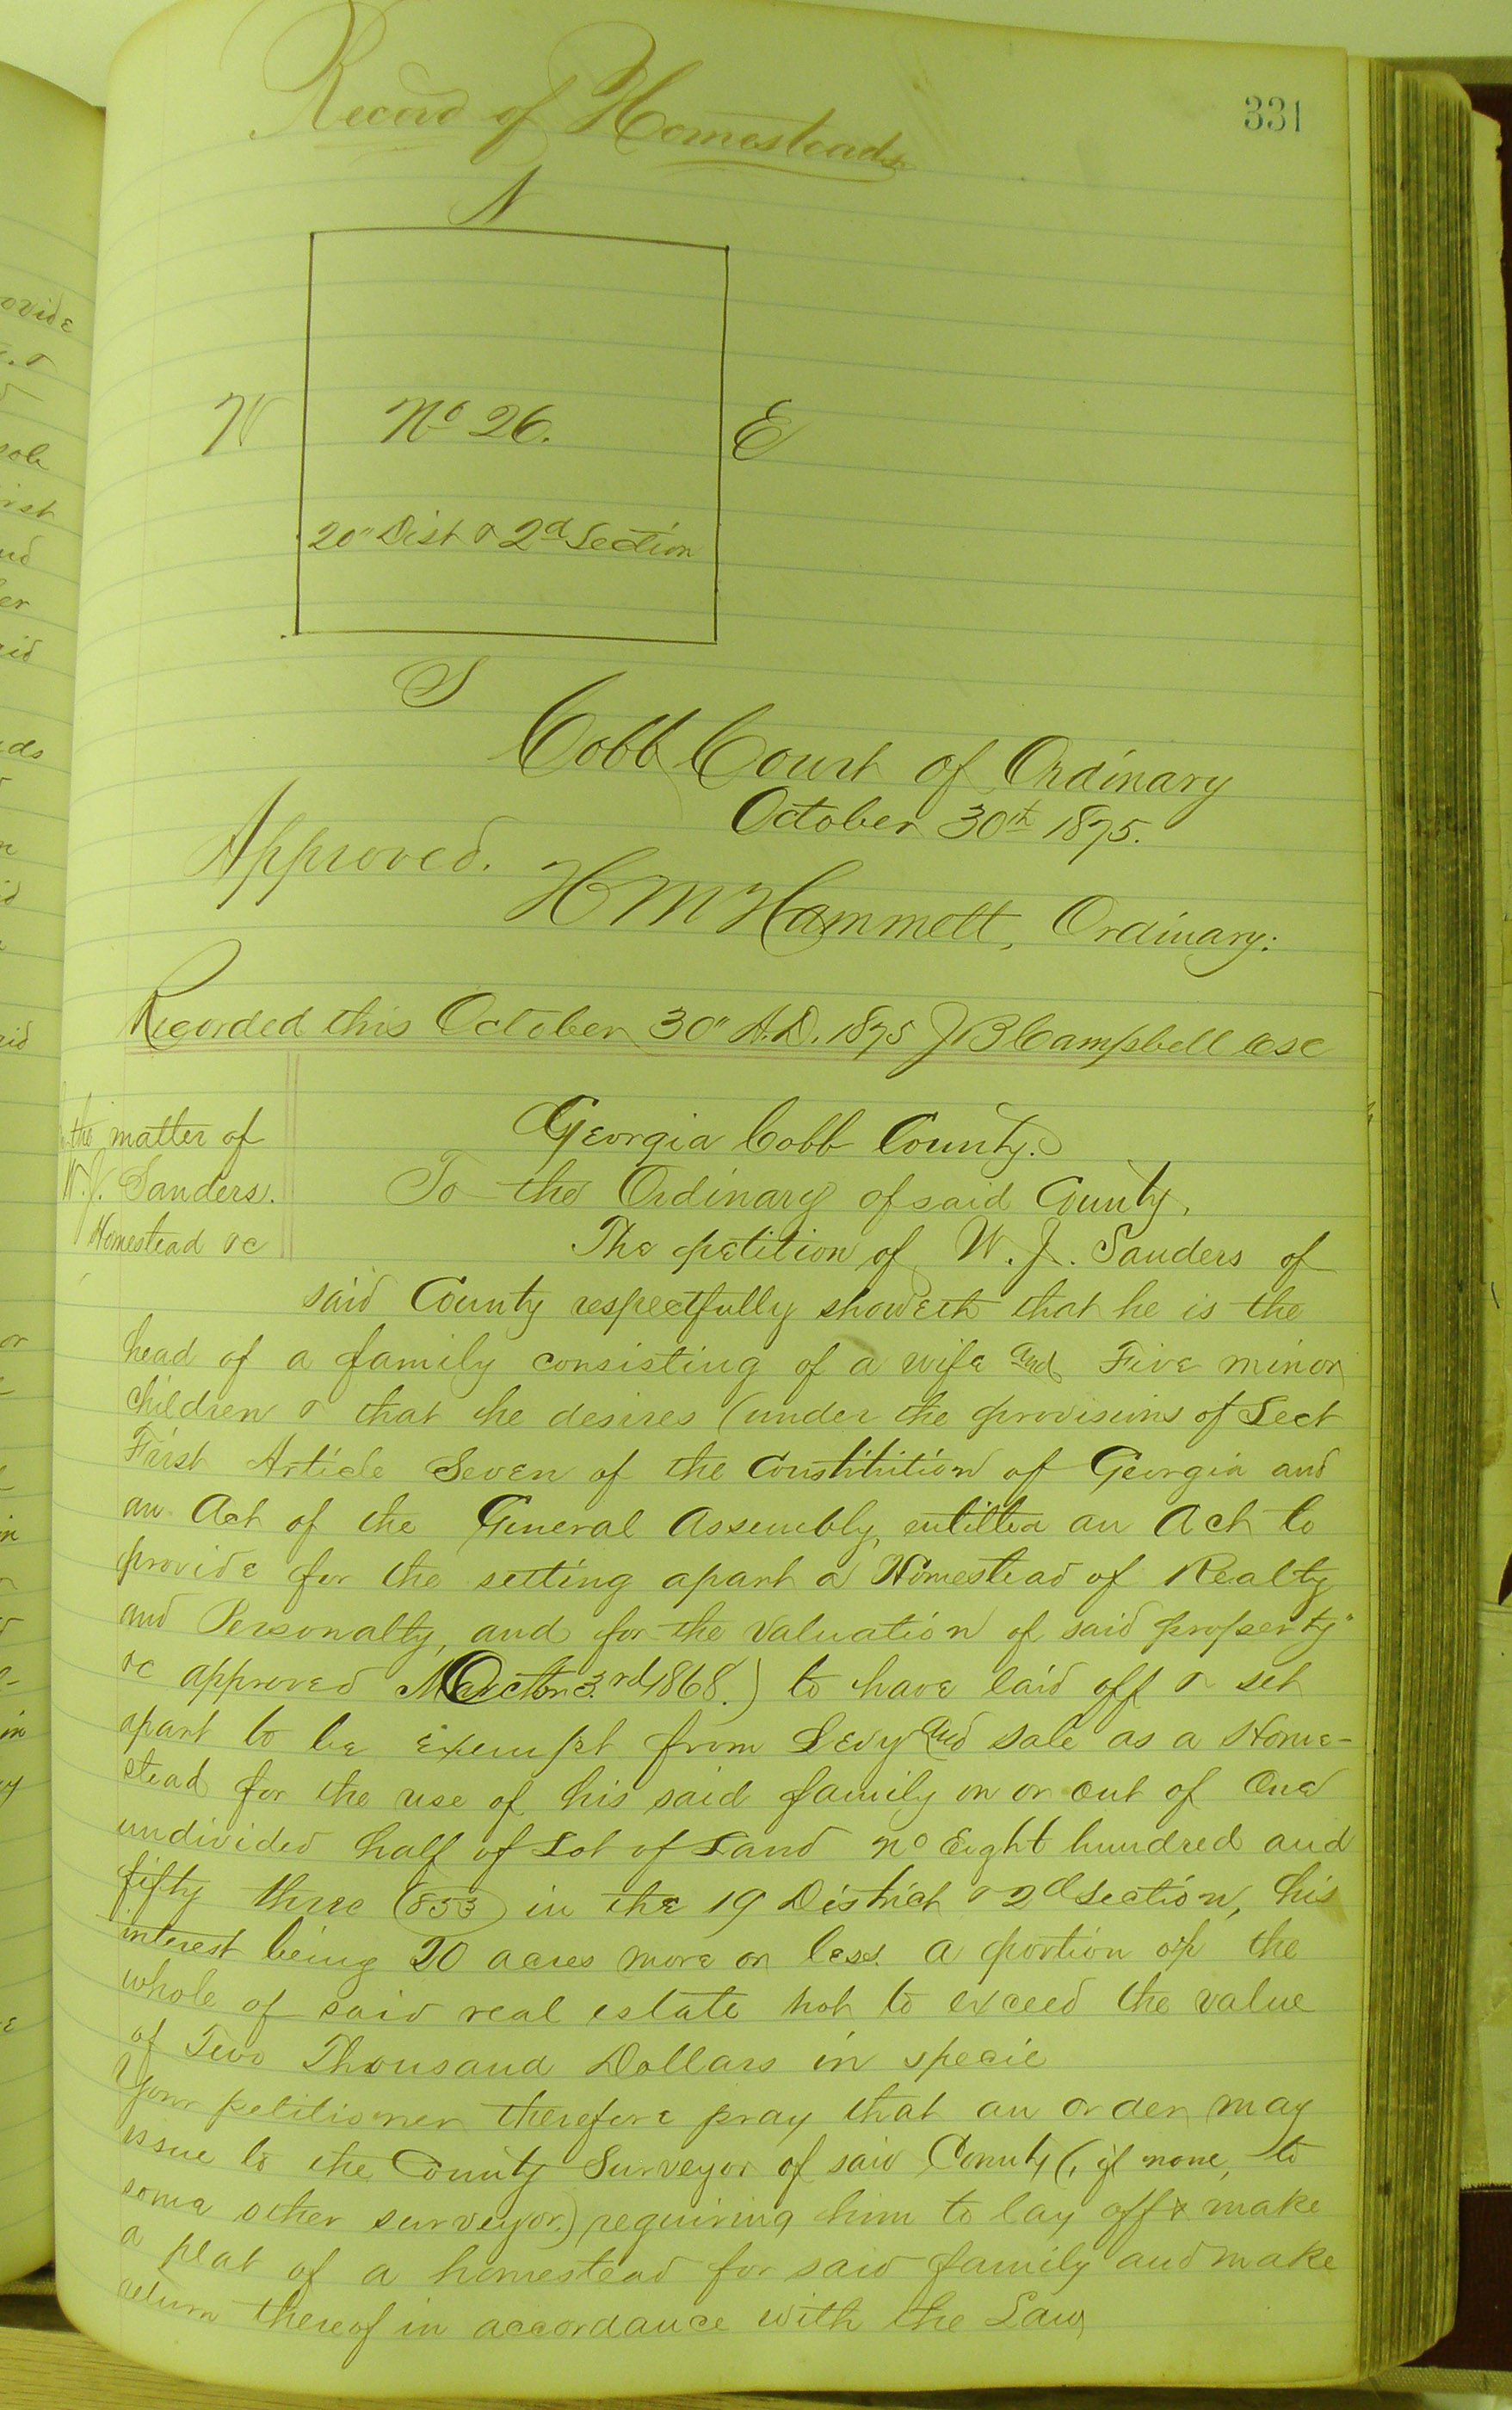 331
Record of Homesteads
N
W
Nº 26.
E
20" Dist & 2d Section
S
Cobb Court of Ordinary
October 30th 1875.
Approved.
H M Hammett, Ordinary:
Recorded this October 30" A.D. 1875 J B Campbell CSC
the matter of
W. J. Sanders.
Homestead &c
Georgia Cobb County.
To the Ordinary of said County,
The petition of W. J. Sanders of
said County respectfully showeth that he is the
head of a family consisting of a wife and Five minor
children & that he desires (under the provisions of Sect
First Article Seven of the Constitution of Georgia and
an Act of the General Assembly, entitled an Act to
provide for the setting apart a Homestead of Realty
and Personalty, and for the Valuation of said property"
&c approved Octbr 3rd 1868.) to have laid off & set
apart to be exempt from Levy and Sale as a Home-
stead for the use of his said family on or out of One
undivided half of Lot of Land no Eight hundred and
fifty three (853) in the 19 District & 2d Section, his
interest being 20 acres more or less. a portion or the
whole of said real estate not to exceed the value
of Two Thousand Dollars in specie
Your petitioner therefore pray that an order may
issue to the County Surveyor of said County (, if none, to
some other surveyor.) requiring him to lay off & make
a plat of a homestead for said family and make
return thereof in accordance with the Law
ovide
sole
irst
er
ds
or
in
in